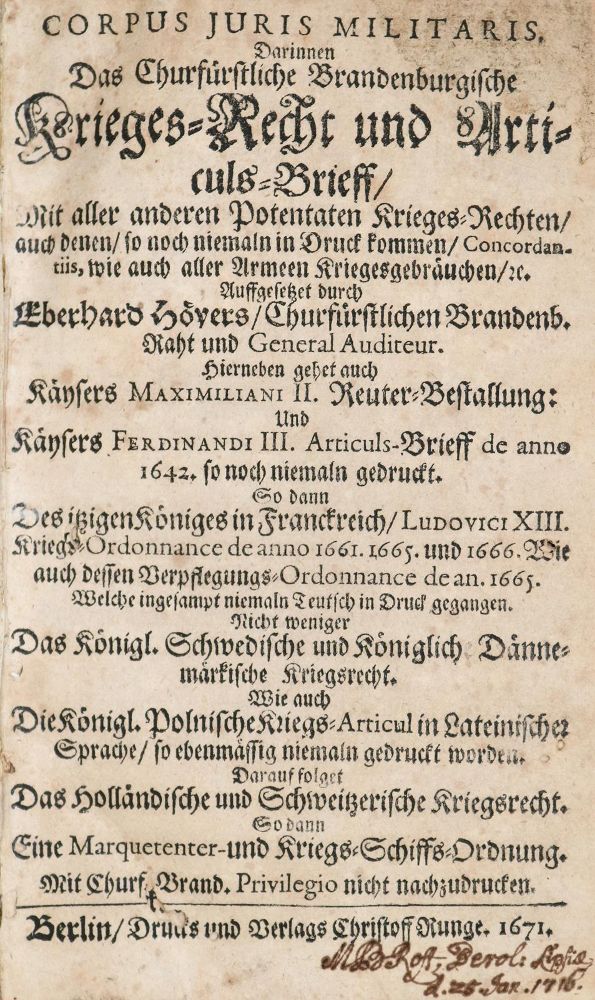 CORPUS JURIS MILITARIS.
Darinnen
Das Churfürstliche Brandenburgische
Krieges-Recht und Arti-
culs-Brieff/
Mit aller anderen Potentaten Krieges-Rechten/
auch denen/ so noch niemaln in Druck kommen/ Concordan-
tiis, wie auch aller Armeen Kriegesgebräuchen/ ꝛc.
Auffgesetzet durch
Eberhard Hövers/ Churfürstlichen Brandenb.
Raht und General Auditeur.
Hierneben gehet auch
Käysers MAXIMILIANI II. Reuter-Bestallung:
Und
Käysers FERDINANDI III. Articuls-Brieff de anno
1642. so noch niemaln gedruckt.
So dann
Des itzigen Königes in Franckreich/ LUDOVICI XIII.
Kriegs-Ordonnance de anno 1661. 1665. und 1666. Wie
auch dessen Verpflegungs-Ordonnance de an. 1665.
Welche ingesampt niemaln Teutsch in Druck gegangen.
Nicht weniger
Das Königl. Schwedische und Königlich Dänne-
märkische Kriegsrecht.
Wie auch
Die Königl. Polnische Kriegs-Articul in Lateinischer
Sprache/ so ebenmässig niemaln gedruckt worden.
Darauf folget
Das Holländische und Schweitzerische Kriegsrecht.
So dann
Eine Marquetenter-und Kriegs-Schiffs-Ordnung.
Mit Churf. Brand. Privilegio nicht nachzudrucken.
Berlin/ Drucks vnd Verlags Christoff Runge. 1671.
Rost, Berol: Lipsiæ
d. 25 Jan. 1716.